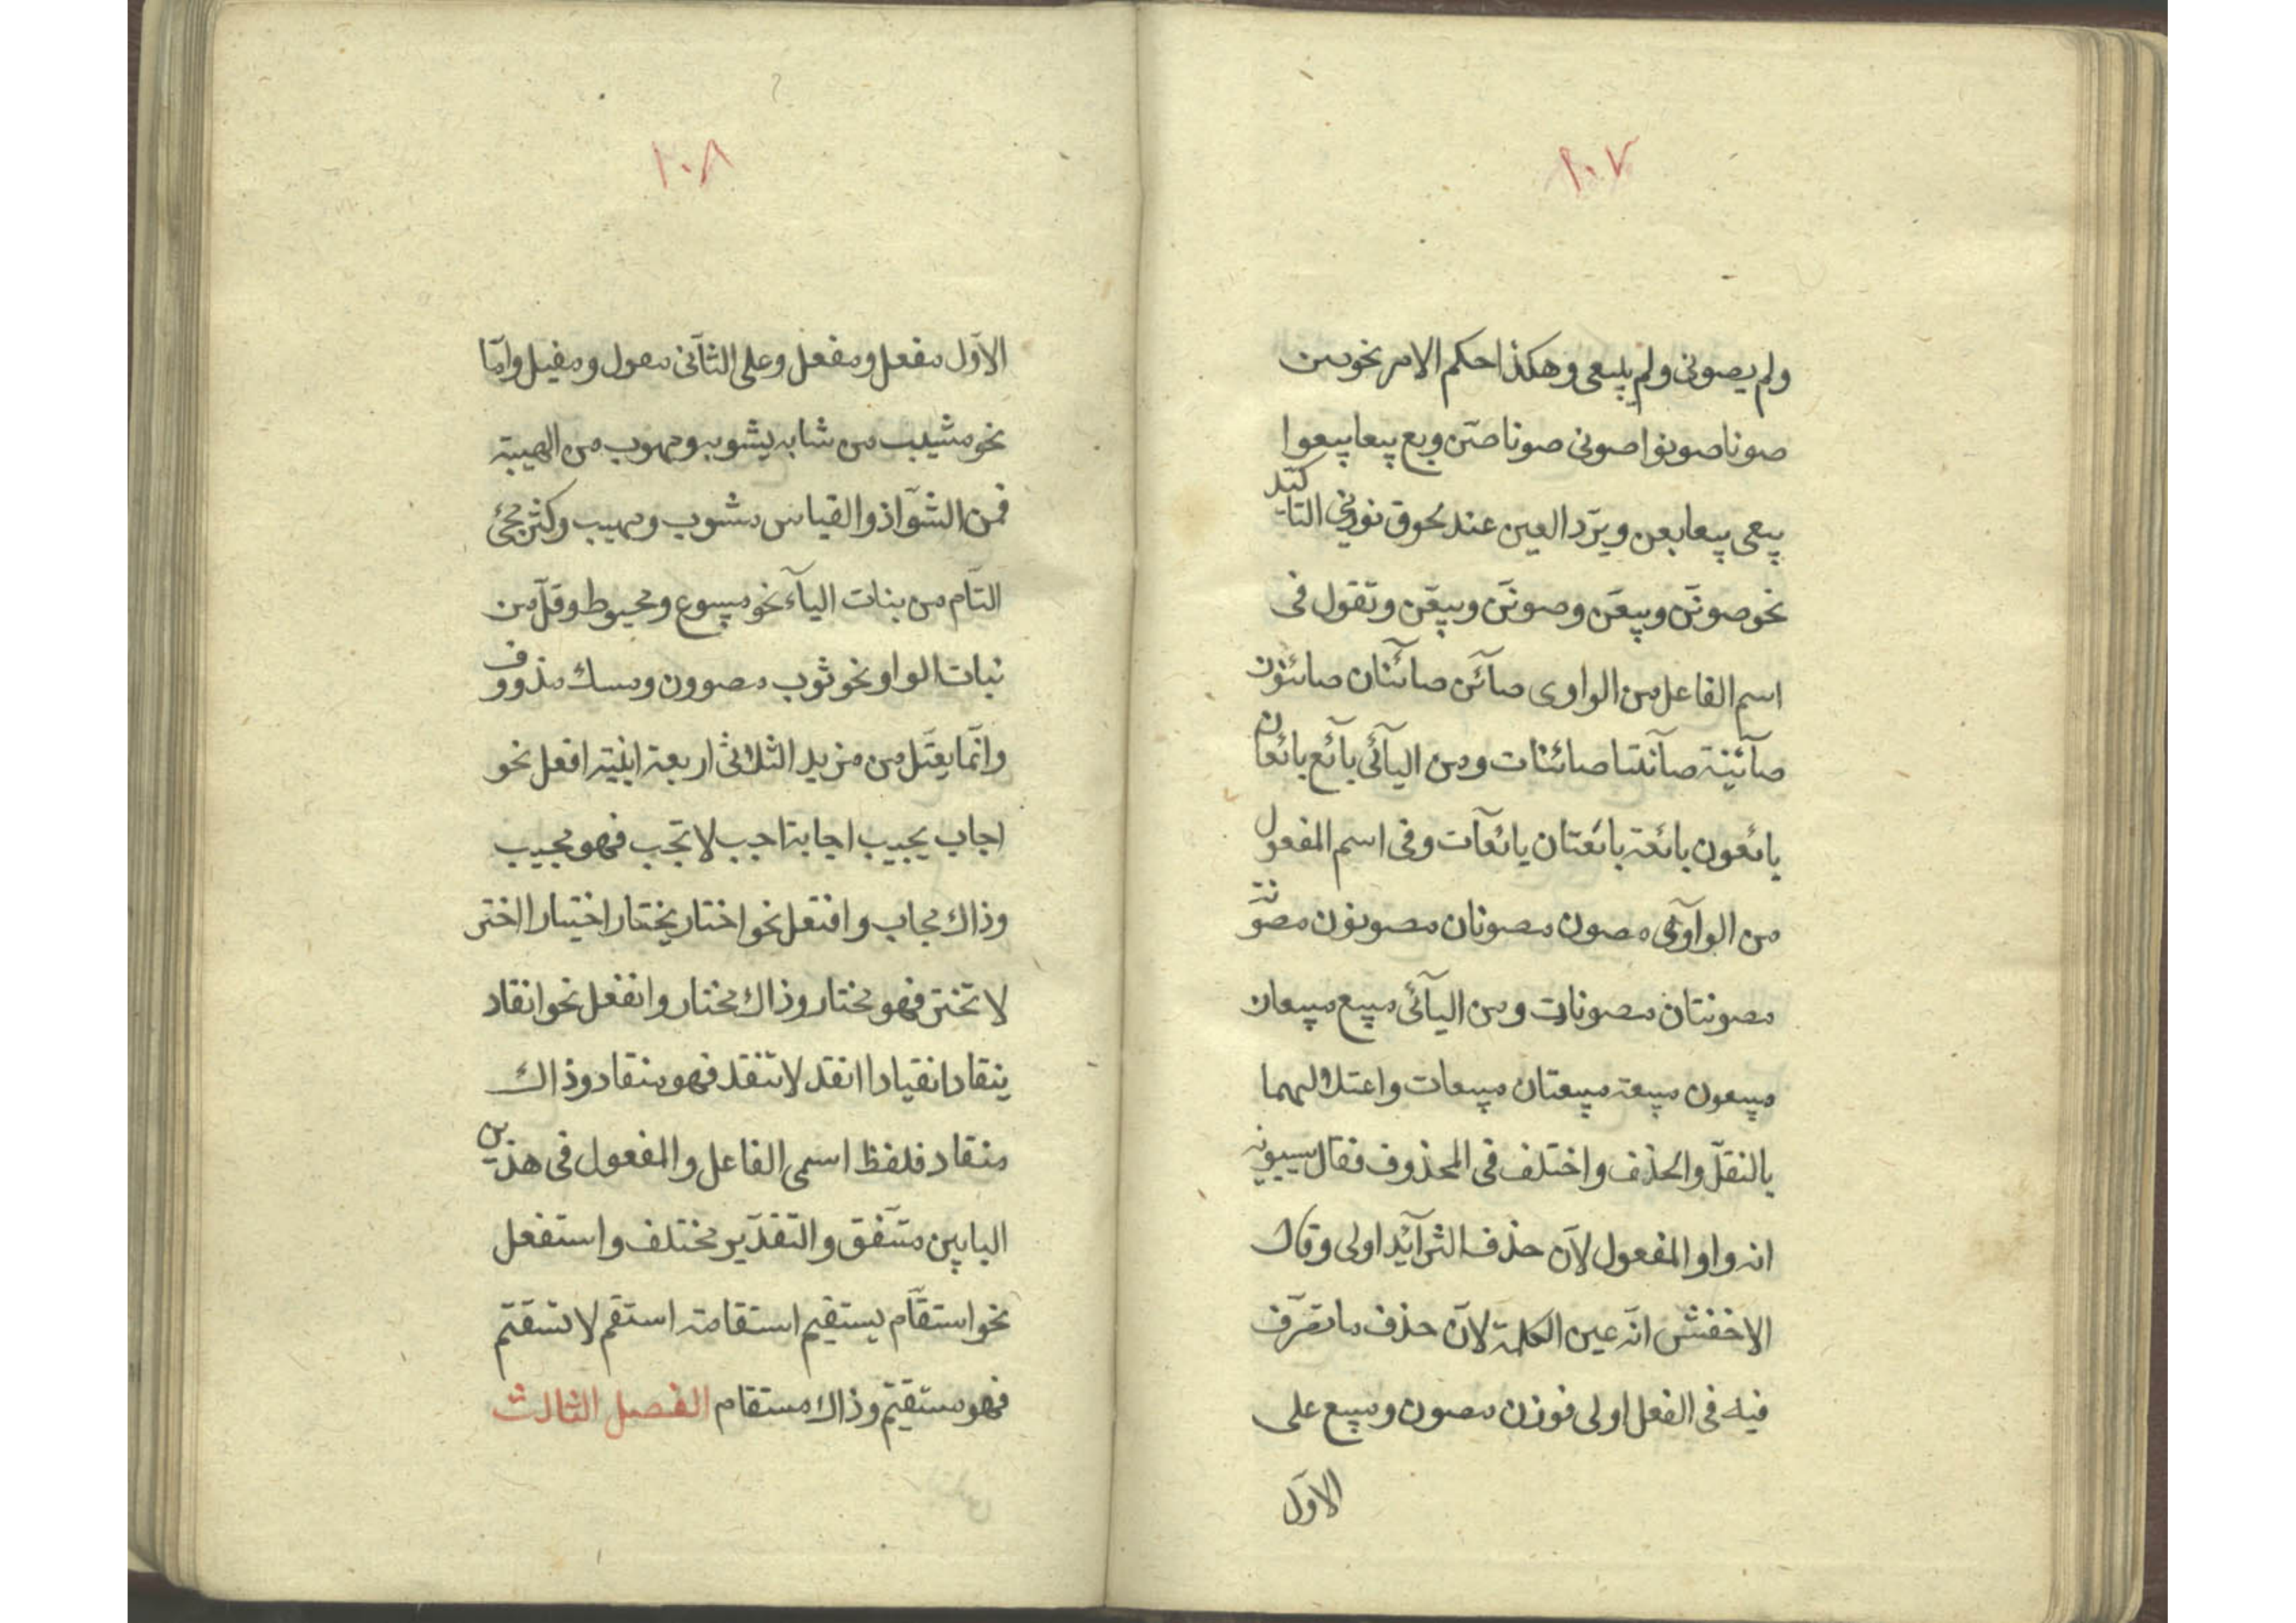 ١٠٧
ولم يصونى ولم يبيعى وهكذا حكم الامر نحو صن
صونا صونوا صونى صونا صنّ وبع بيعا بيعوا
بيعى بيعا بعن ويردّ العين عند لحوق نونى التاكيد
نحو صوننّ وبيعنّ وصوننّ وبيعنّ وتقول فى
اسم الفاعل من الواوى صآئن صآئنان صائنون
صآئنة صآئنتا صائنات ومن اليآئى بآئع بائعان
بائعون بائعة بائعتان بائعآت وفى اسم المفعول
من الوآوى مصون مصونان مصونون مصونة
مصونتان مصونات ومن اليآئى مبيع مبيعان
مبيعون مبيعة مبيعتان مبيعات واعتلالهما
بالنقل والحذف واختلف فى المحذوف فقال سيبويه
انه واو المفعول لانّ حذف الزآئد اولى وقال
الاخفش انّه عين الكلمة لانّ حذف ما تصرّف
فيه فى الفعل اولى فوزن مصون ومبيع على
الاوّل
١٠٨
الاوّل مفعل ومفعل وعلى الثآنى مفول ومفيل وامّا
نحو مشيب من شابه يشوبه ومهوب من الهيبة
فمن الشوّاذ والقياس مشوب ومهيب وكثر مجئ
التآم من بنات اليآء نحو مبيوع ومخيوط وقلّ من
نبات الواو نحو ثوب مصوون ومسك مذووف
وانّما يعتلّ من مزيد الثلاثى اربعة ابنية افعل نحو
اجاب يجيب اجابة اجب لا تجب فهو مجيب
وذاك مجاب وافتعل نحو اختار يختار اختيارا اختر
لا تختر فهو مختار وذاك مختار وانفعل نحو انقاد
ينقاد انقيادا انقد لا تنقد فهو منقاد وذاك
منقاد فلفظ اسمى الفاعل والمفعول فى هذين
البابين متّفق والتقدير مختلف واستفعل
نحو استقام يستقيم استقامة استقم لا تستقم
فهو مستقيم وذاك مستقام الفصل الثالث